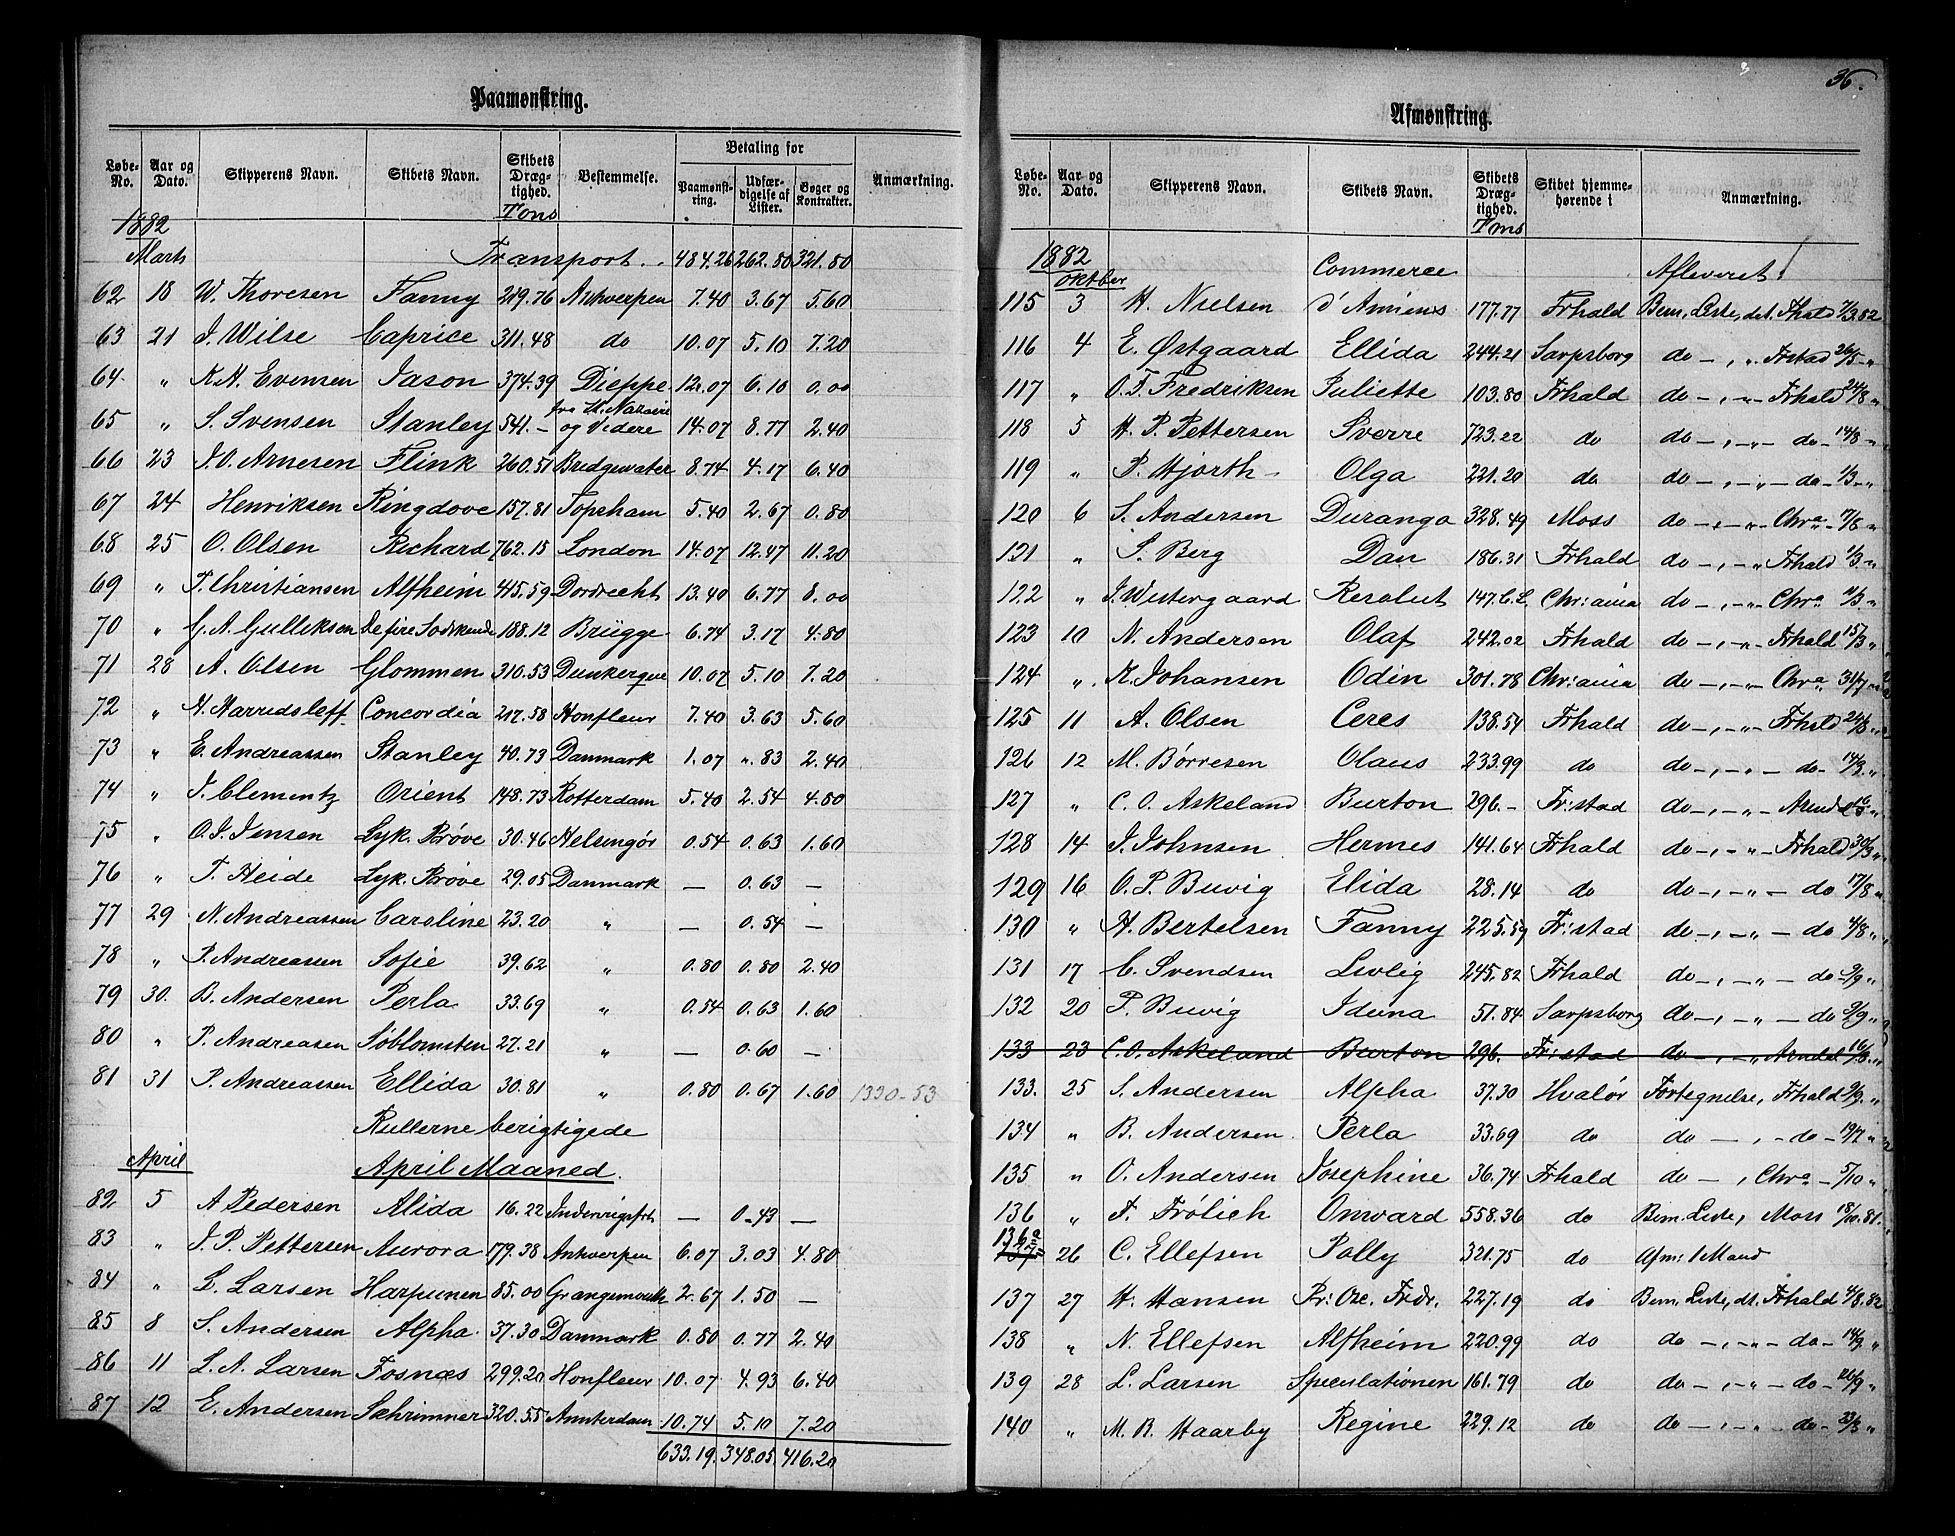 Paamønstring.
Løbe-No. | Aar og Dato. | Skipperens Navn. | Skibets Navn. | Skibets Dræg-tighed. Tons | Bestemmelse. | Betaling for Paamønst-ring. | Udfær-digelse af Lister. | Bøger og Kontrakter. | Anmærkning.
1882
Marts Transport . . 484.26 262.80 321.80
62 18 W. Thoresen Fanny 219.76 Antwerpen 7.40 3.67 5.60
63 21 J. Wilse Caprice 311.48 do 10.07 5.10 7.20
64. " K. N. Evensen Jason 374.39 Dieppe 12.07 6.10 0.00
fra St. Nazaire
65 " S. Svensen Stanley 541.- og videre 14.07 8.77 2.40
66 23 J. O. Arnesen Flink 260.51 Bridgewater 8.74 4.17 6.40
67 24 Henriksen Ringdove 157.81 Topsham 5.40 2.67 0.80
68 25 O. Olsen Richard 762.15 London 14.07 12.47 11.20
69 " P. Christiansen Alfheim 415.59 Dordrecht 13.40 6.77 8.00
70 " G. A. Gulliksen De fire Sødskende 188.12 Brügge 6.74 3.17 4.80
71 28 A. Olsen Glommen 310.53 Dunkerque 10.07 5.10 7.20
72 " N. Harridsleff Concordia 217.58 Honfleur 7.40 3.63 5.60
73 " E. Andreassen Stanley 40.73 Danmark 1.07 ".83 2.40
74 " J. Clementz Orient 148.73 Rotterdam 5.40 2.54 4.80
75 " O. J. Jensen Lyk. Prøve 30.46 Helsingør 0.54 0.63 1.60
76 " T. Heide Lyk. Prøve 29.05 Danmark — 0.63 —
77 29 N. Andreassen Caroline 23.20 " — 0.54 —
78 " P. Andreassen Sofie 39.62 " 0.80 0.80 2.40
79 30. B. Andersen Perla 33.69 " 0.54 0.63 1.60
80 " P. Andreasen Søblomsten 27.21 " — 0.60 —
81 31 P. Andreassen Ellida 30.81 " 0.80 0.67 1.60 1330-53
Rullerne berigtigede
April April Maaned.
82 5 A Pedersen Alida 16.22 Indenrigsfrt — 0.43 —
83 " J. P. Pettersen Aurora 179.38 Antwerpen 6.07 3.03 4.80
84 " L. Larsen Harpunen 85.00 Grangemouth 2.67 1.50 —
85 8 S. Andersen Alpha 37.30 Danmark 0.80 0.77 2.40
86 11 L. A. Larsen Fosnæs 299.20 Honfleur 10.07 4.93 6.40
87 12 E. Andersen Schrimner 320.55 Amsterdam 10.74 5.10 7.20
633.19. 348.05. 416.20
36.
Afmønstring.
Løbe-No. | Aar og Dato. | Skipperens Navn. | Skibets Navn. | Skibets Dræg-tighed. Tons | Skibet hjemme-hørende i | Anmærkning.
1882
oktber Commerce Afleveret!
115 3 H. Nielsen d'Amiens 177.77 Frhald Bem. Liste, dt. Fhald 7/3.82
116 4 E. Østgaard Ellida 244.21 Sarpsborg do —, " Frstad 26/5 - "
117 " O. T. Fredriksen Juliette 103.80 Frhald do —, - " - Frhald 24/8 "
118 5 H. P. Pettersen Sverre 723.22 do do —, - " - do - 14/8 - "
119 " P. Hjorth - Olga 221.20 do do —, - " - do - 1/3 - "
120 6 S. Andersen Duranga 328.49 Moss do —, - " - Chra 17/8 - "
121 " S. Berg Dan 186.31 Frhald do —, - " Frhald 1/3 - "
122 " J. Westergaard Resolut 147. C.L. Chr:ania do —, - " - Chra 11/3 - "
123 10 N. Andersen Olaf 242.02 Frhald do —, - " - Frhald 15/3 "
124 " K. Johansen Odin 301.78 Chr:ania do —, - " - Chra 31/7
125 11 A. Olsen Ceres 138.54 Frhald do —, - " - Frhald 24/8 "
126 12 M. Børresen Olaus 233.99 do do —, - " — do - 14/3. "
127 " C. O. Askeland Burton 296.- Fr:stad do —, - " - Arendal
128 14 J. Johnsen Hermes 141.64 Frhald do —, - " - Frhald 30/3 "
129 16 O. P. Buvig Elida 28.14 do do —, - " — do 17/8 "
130 " H. Bertelsen Fanny 225.59 Fr:stad do —, - " — do 4/8 "
131 17 C. Svendsen Livlig 245.82 Frhald do —, - " — do - 9/9 "
132 20 P. Buvig Iduna 51.84 Sarpsborg do —, - " — do 9/9 "
133 23 C. O. Askeland Burton 296. Fr:stad do —, - " Arndal 16/3 "
133. 25 S. Andersen Alpha 37.30 Hvalør Fortegnelse, Frhald 9/9. "
134 " B. Andersen Perla 33.69 do do —, - do - 19/7 "
135 " O. Andersen Josephine 36.74 Frhald do —, Chra - 5/10 "
136 " F. Frölich Onward 558.36 do Bem. Liste, Moss 18/10 81.
136a 137 26 C. Ellefsen Polly 321.75 do Afm: 1 Mand
137 27 H. Hansen Pr: Osc. Frdr. 227.19 do Bem. Liste, dt. Frhald 4/8. 82
138 " N. Ellefsen Alfheim 220.99 do do —, - " - do - 14/9 "
139 28 L. Larsen Speculationen 161.79 do do —, - " - do - 26/9 "
140 " M. B. Haarby Regine 229.12 do do —, - " - do - 23/3 "